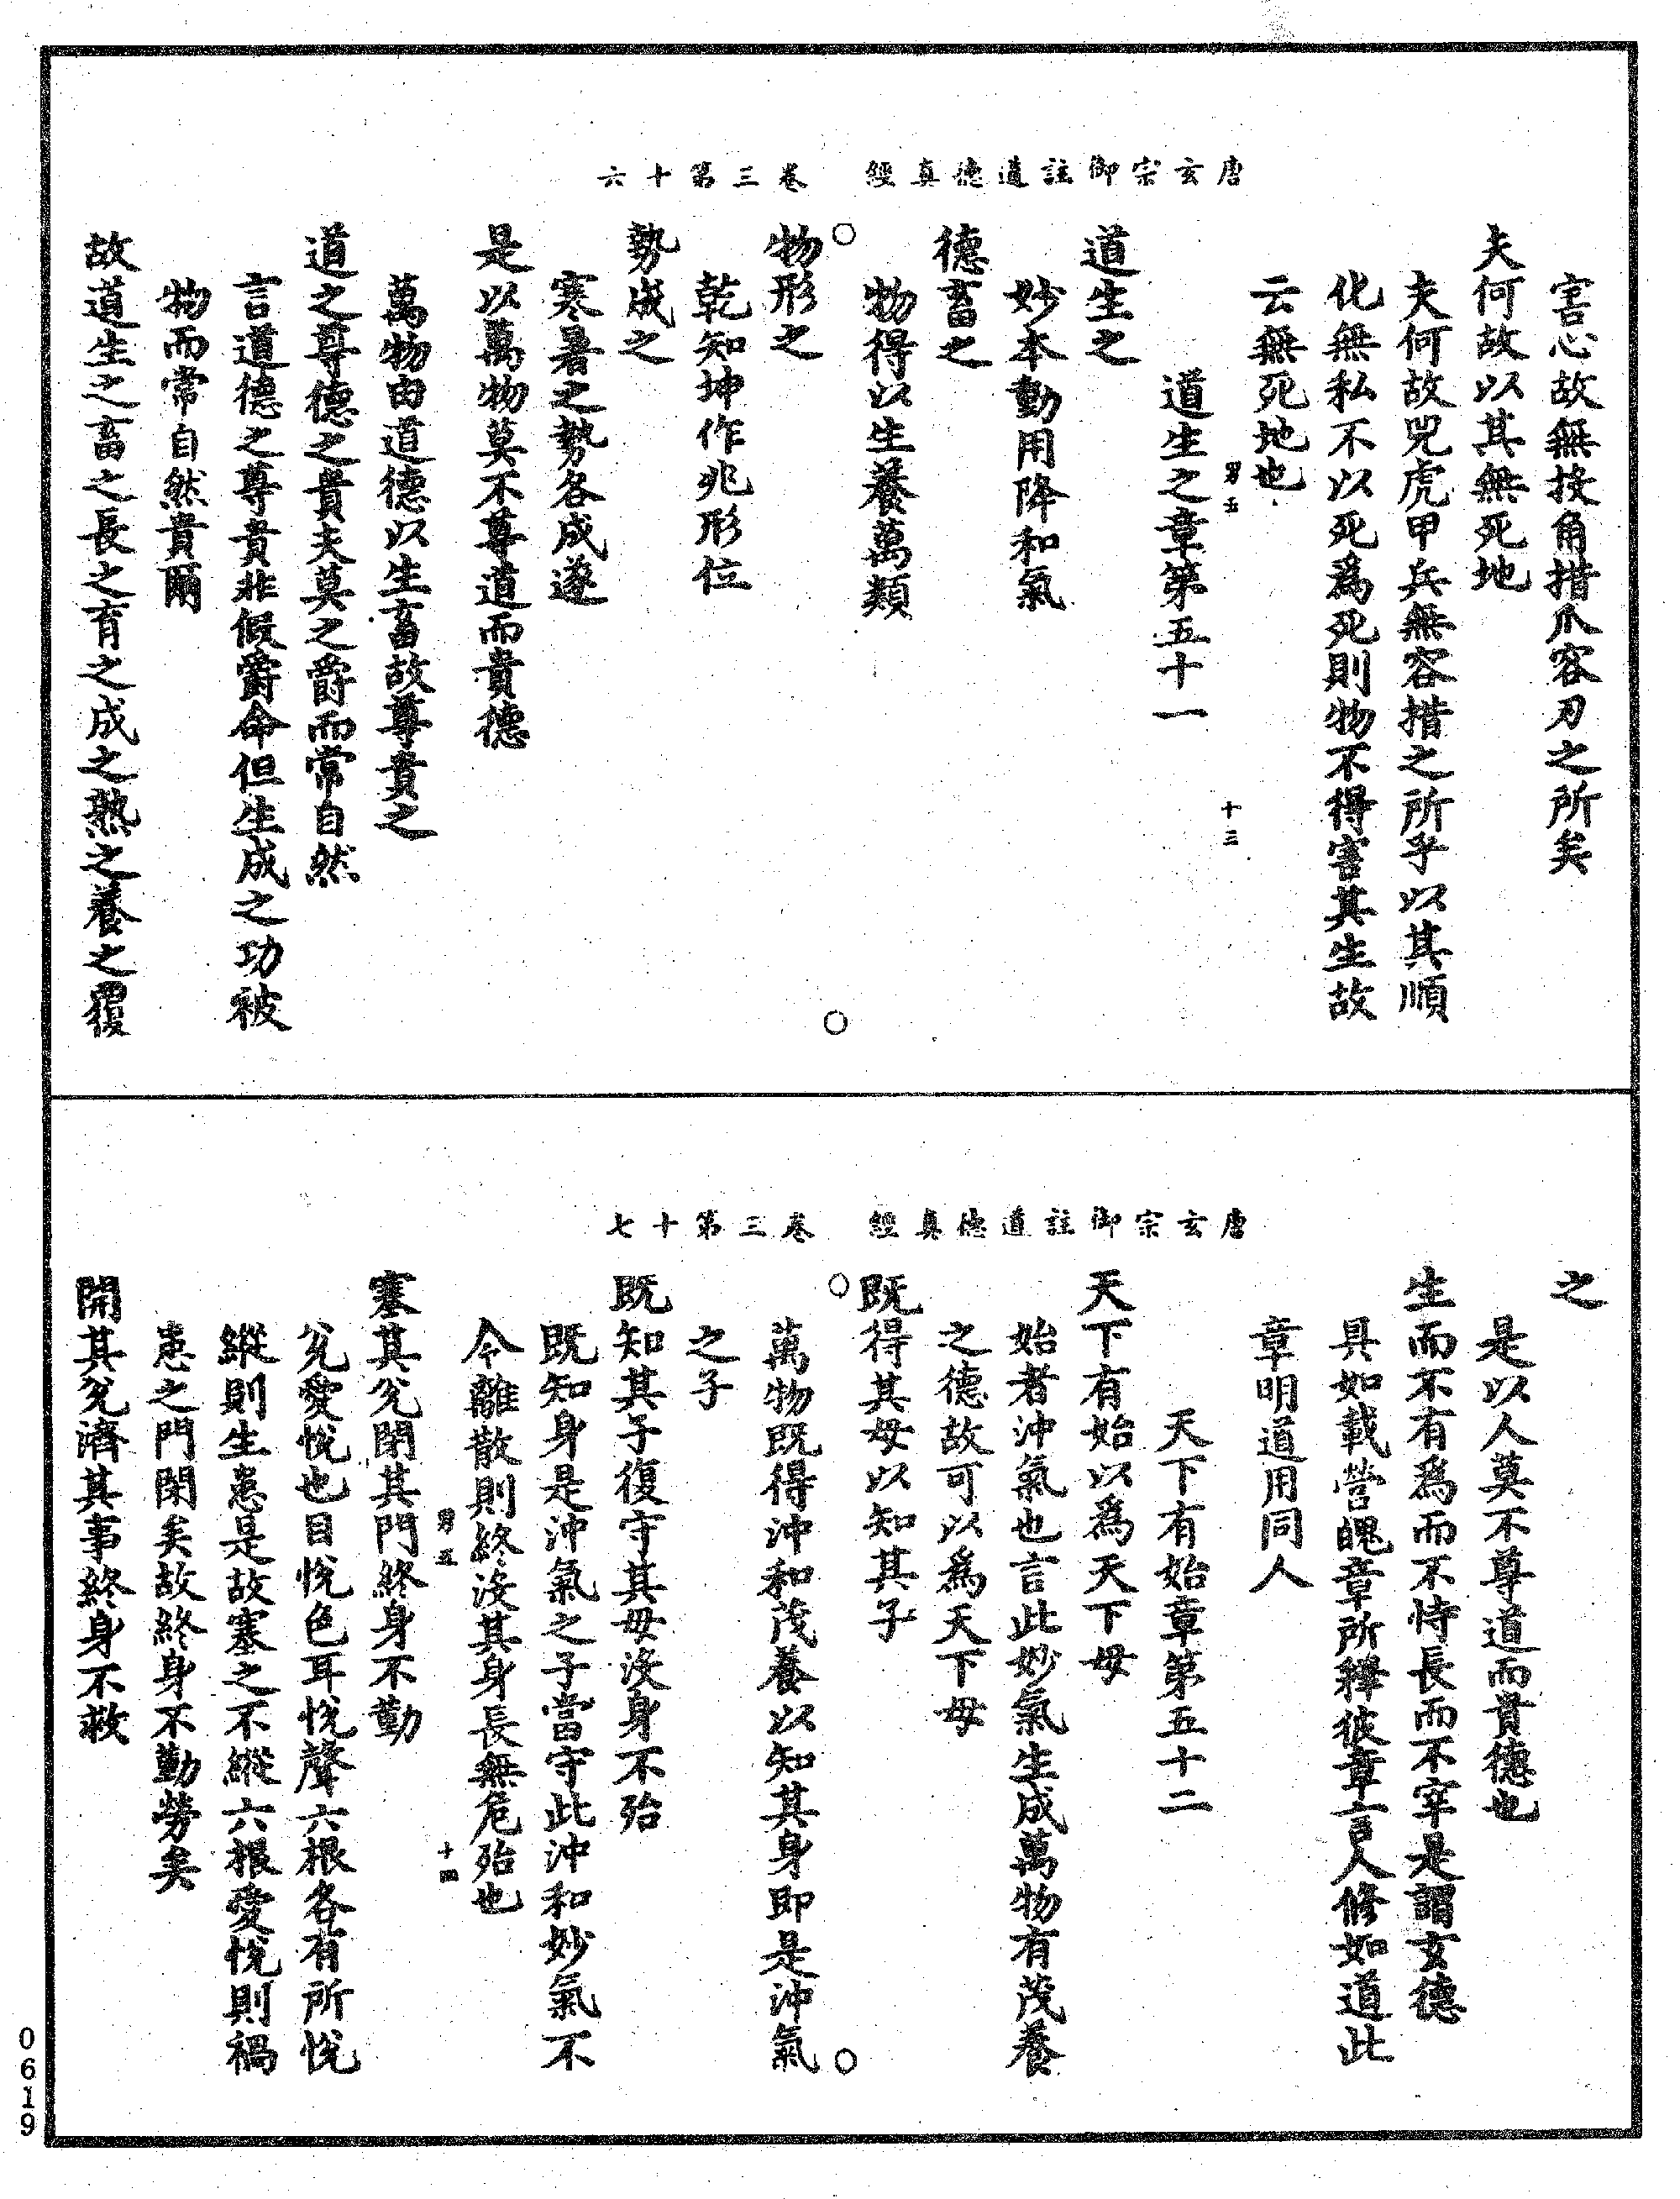 唐玄宗御註道德真經　卷三第十六
害心故無投角措爪容刃之所矣
夫何故以其無死地
夫何故兕虎甲兵無容措之所乎以其順
化無私不以死為死則物不得害其生故
云無死地也
男五　十三
道生之章第五十一
道生之
妙本動用降和氣
德畜之
物得以生養萬類
物形之
乾知坤作兆形位
勢成之
寒暑之勢各成遂
是以萬物莫不尊道而貴德
萬物由道德以生畜故尊貴之
道之尊德之貴夫莫之爵而常自然
言道德之尊貴非假爵命但生成之功被
物而常自然貴爾
故道生之畜之長之育之成之熟之養之覆
唐玄宗御註道德真經　卷三第十七
之
是以人莫不尊道而貴德也
生而不有為而不恃長而不宰是謂玄德
具如載營魄章所釋彼章言人修如道此
章明道用同人
天下有始章第五十二
天下有始以為天下母
始者沖氣也言此妙氣生成萬物有茂養
之德故可以為天下母
既得其母以知其子
萬物既得沖和茂養以知其身即是沖氣
之子
既知其子復守其母沒身不殆
既知身是沖氣之子當守此沖和妙氣不
令離散則終沒其身長無危殆也
男五　十四
塞其兌閉其門終身不勤
兌愛悅也目悅色耳悅聲六根各有所悅
縱則生患是故塞之不縱六根愛悅則禍
患之門閉矣故終身不勤勞矣
開其兌濟其事終身不救
0619